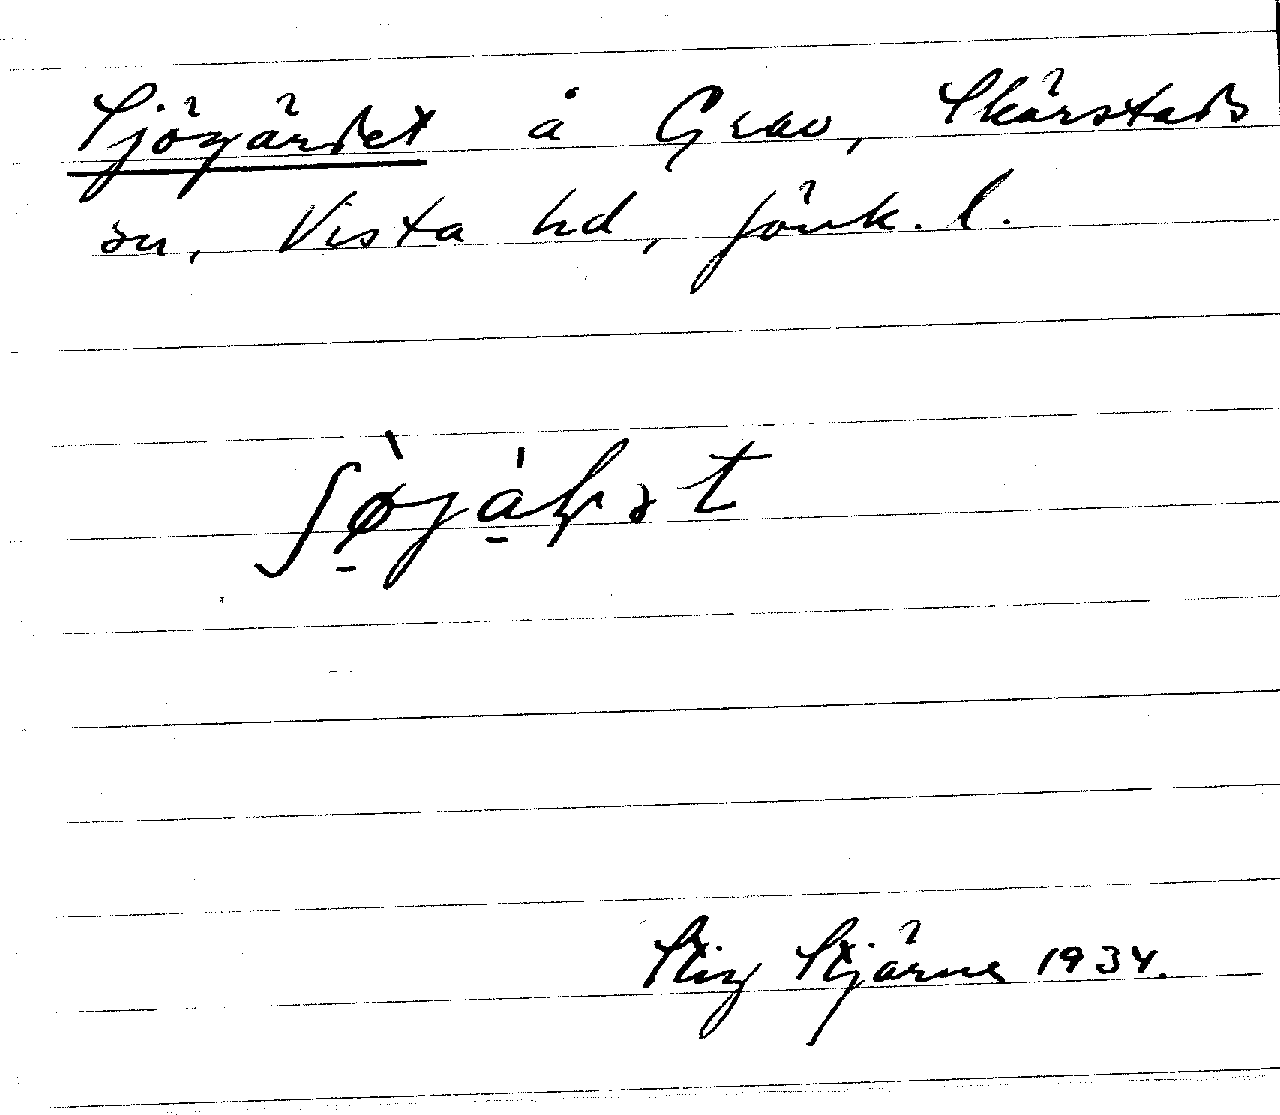 Sjögärdet å Grav, Skärstads
sn, Vista hd, Jönk. l.
Stig Stjärne 1934.